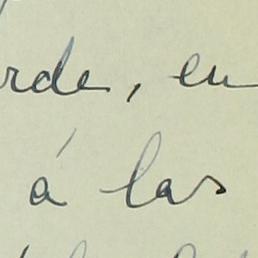 rde, en
á las